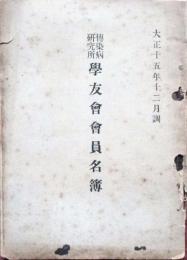 大正十五年十二月調
傳染病
研究所
學友會會員名簿